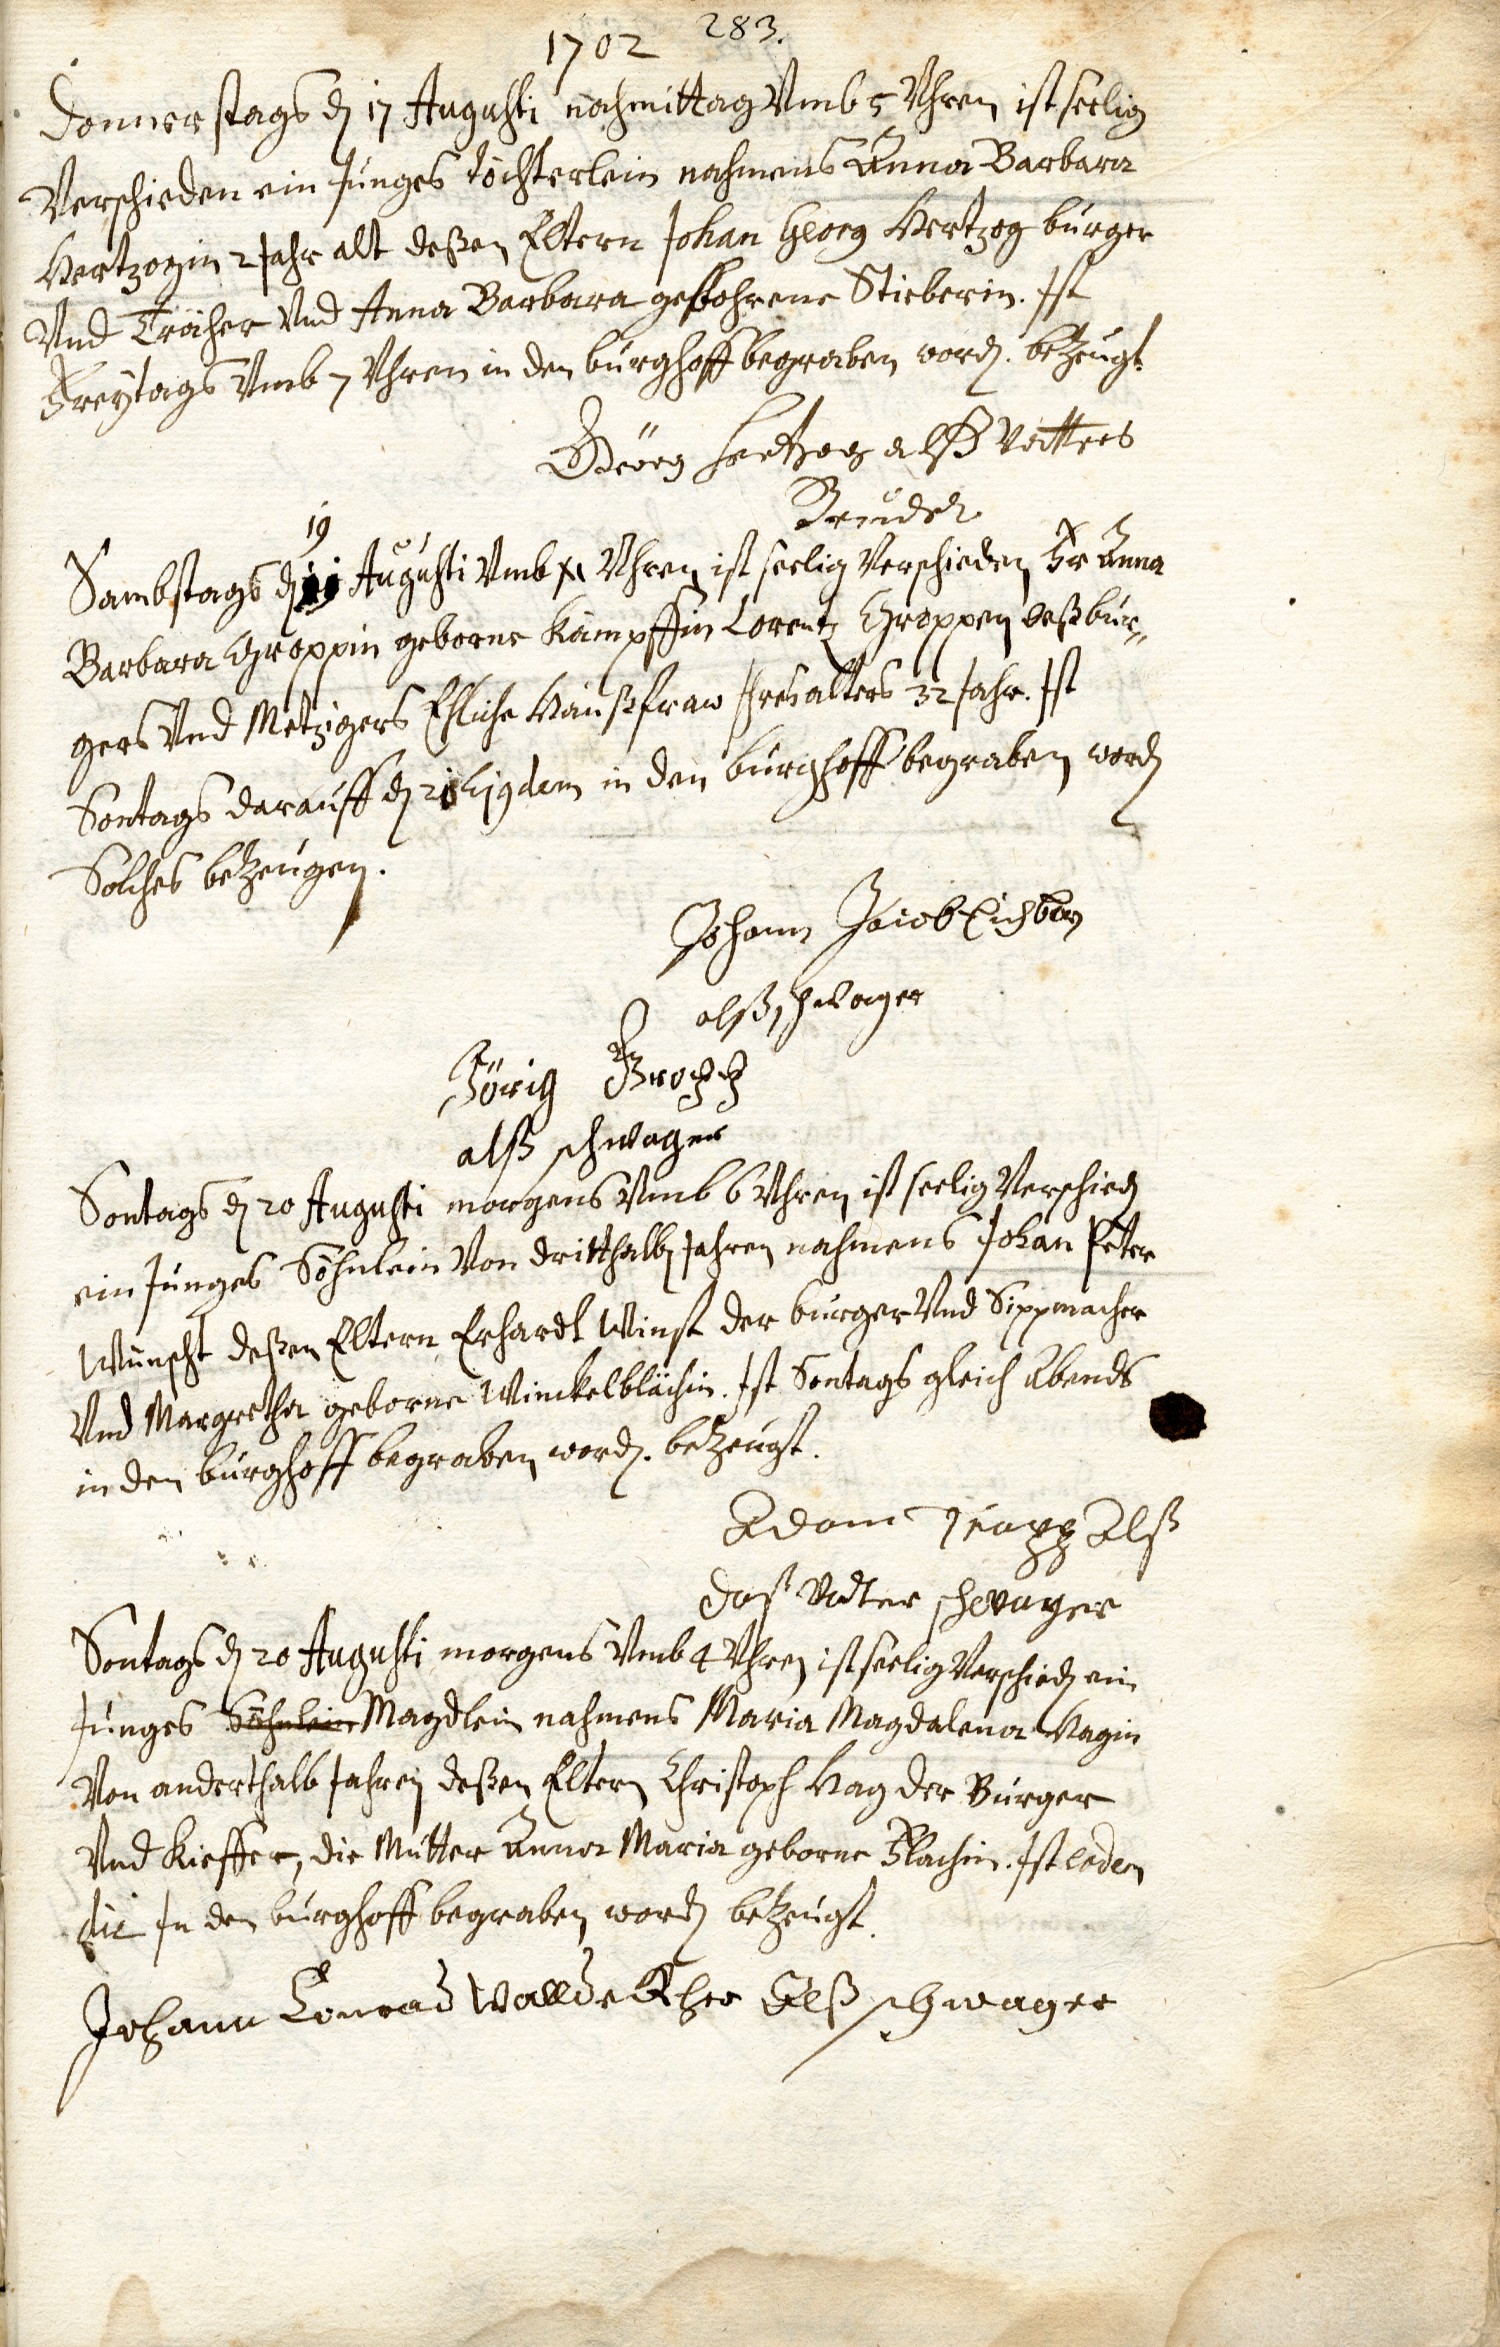 1702 283.
Donnerstags d. 17 Augusti nachmittag Vmb 5 Vhren ist seelig
Verschieden ein Junges töchterlein nahmens Anna Barbara
Hertzogin 2 Jahr alt deßen Eltern Johan Georg Hertzog burger
Vnd Träher Vnd Anna Barbara gebohrene Stieberin. Ist
Freÿtags Vmb 7 Vhren in den burghoff begraben word. bezeugt
Görg Hertzog alß Vatters
Bruder
19
Sambstags d. Augusti Vmb Vhren ist seelig Verschieden Fr Anna
Barbara Groppin geborne Kämpffin Lorentz Groppen deß bur„
gers Vnd Metzigers Ehliche Haußfraw Ihres alters 32 Jahr. Ist
Sontags darauff d. 20 Ejgdem in den burghoff begraben word
Solches bezeugen.
Johann Jacob
alß schwager
Jörig Gropp
alß schwager
Sontags d. 20 Augusti morgens Vmb 6 Vhren ist seelig Verschied
ein Junges Söhnlein Von dritthalb Jahren nahmens Johan Peter
Wunscht deßen Eltern Erhardt Winst der burger Vnd Sippmacher
Vnd Margretha geborne Winckelblächin. Ist Sontags gleich Abends
in den burghoff begraben word. bezeugt.
Adam Trapp Alß
daß Vatter schwager
Sontags d. 20 Augusti morgens Vmb 4 Vhren ist seelig Verschied ein
Junges Söhnlein Magdlein nahmens Maria Magdalena Hagin
Von anderthalb Jahren deßen Eltern Christoph Hag der Burger
Vnd Kieffer, die Mutter Anna Maria geborne Flachin. Ist eodem
die In den burghoff begraben word bezeugt.
Johann Conrad Walldeckher Alß schwager